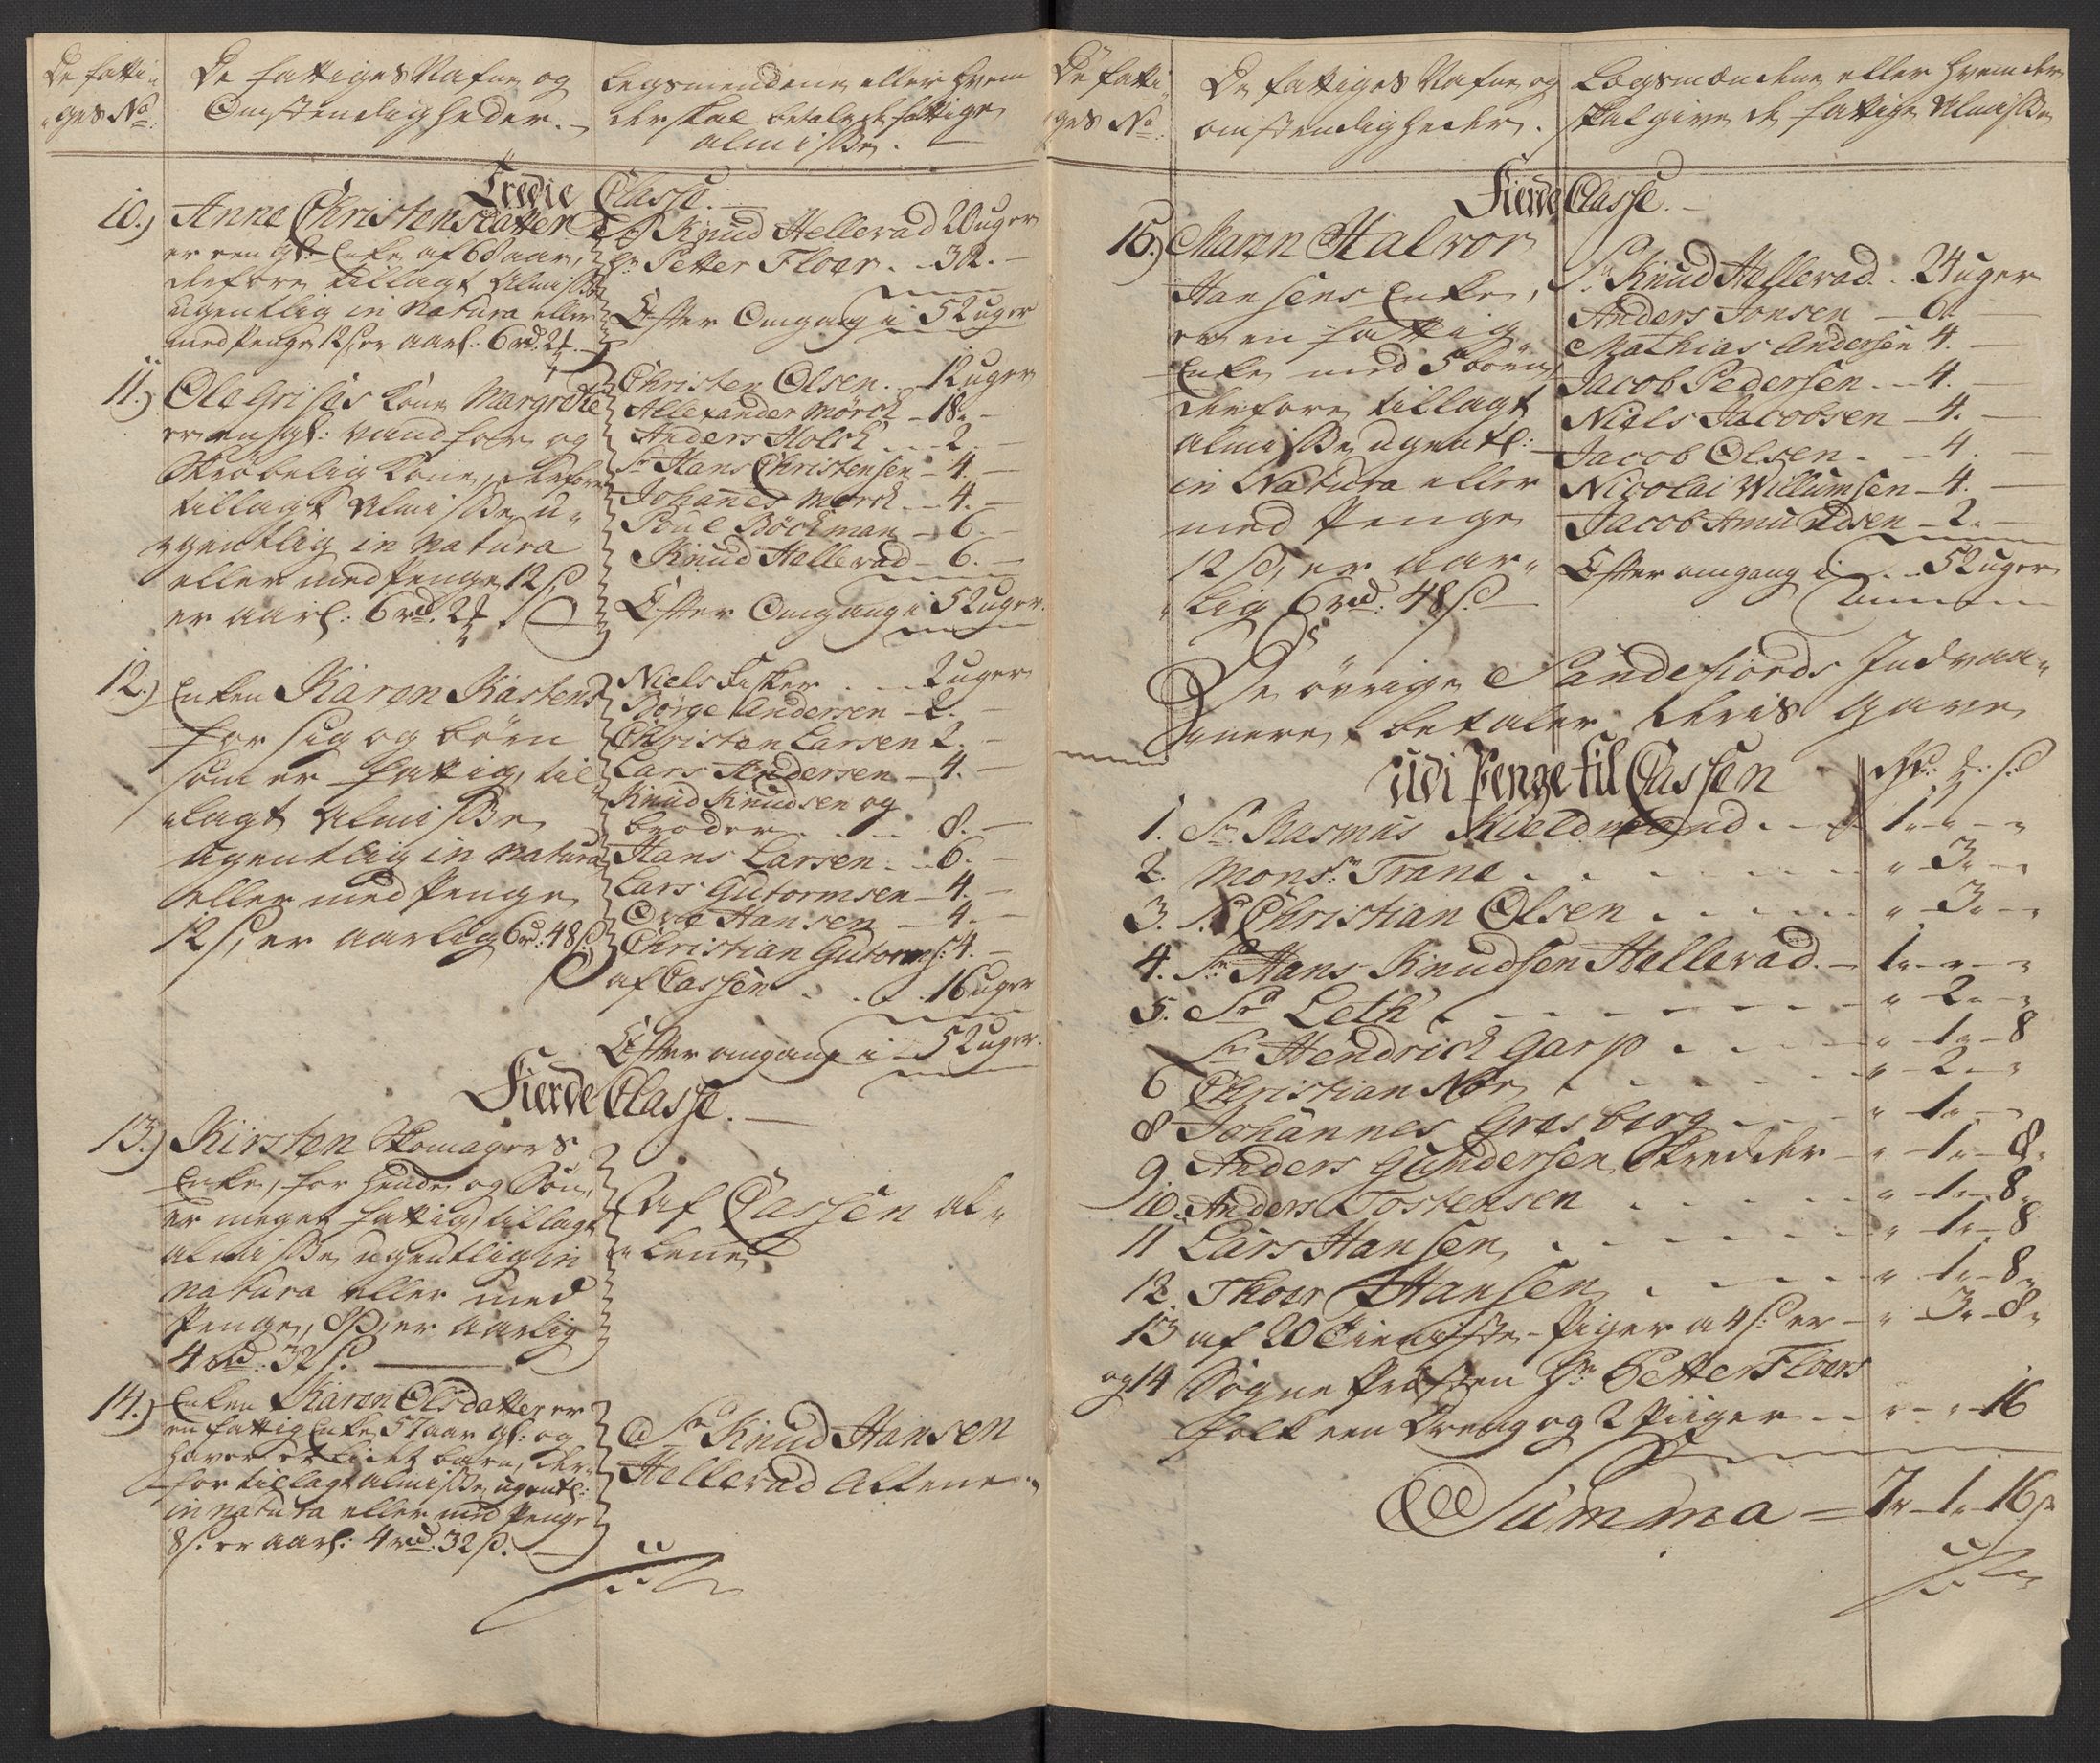 De fatti-
ges No:
De fattiges Nafne og
Omstendigheder. -
Legsmendene eller hvem
der skal betale de fattige
almisse.
Tredie Classe. -
10.) Anne Christensdatter
er een gl: Enke af 60 aar,
derfore tillagt Almisse
ugentlig in Natura eller
med Penge 12 s, er aarl: 6 rd. 2
Knud Hellerad 20 uger
Hr. Petter Floer. - 32. -
Efter Omgang i 52 uger
11.) Ole Grises Kone Margrethe
er en gl: vandfør og
Skrøbelig Kone, derfore
tillagt Almisse u-
gentlig in Natura
eller med Penge 12 s
er aarl: 6 rd. 2
Christen Olsen. - 12 uger
Allexander Mörch - 18. -
Anders Holck - 2. -
Sr. Hans Christensen - 4. -
Johannes Mörch. - 4. -
Poul Böckman - 6. -
Knud Hellerad - 6. -
Efter Omgang i 52 uger.
12.) Enken Karen Kastens
for sig og børn
som er fattig, til-
lagt Almisse
ugentlig in Natura
eller med Penge
12 s, er aarlig 6 rd: 48 s.
Niels Fisker. - 2 uger
Börge Andersen - 2. -
Christen Larsen 2. -
Lars Andersen - 4. -
Knud Knudsen og
broder - 8. -
Hans Larsen. - 6. -
Lars Gutormsen - 4. -
Ove Hansen - 4. -
Christian Gutorms: 4. -
af Cassen . . . 16 uger
Efter omgang i - 52 uger.
Fierde Classe. -
13.) Kirsten Skomagers
Enke, for hende og Søn,
er meget fattig, tillagt
almisse ugentlig in
Natura eller med
Penge, 8 s, er aarlig
4 rd: 32 s.
af Cassen al-
lene
14.) Enken Karen Olsdatter er
en fattig Enke 57 aar gl: og
haver et lidet barn, der-
for tillagt almisse ugentl:
in natura eller med Penge
8 s. er aarl: 4 rd. 32 s.
Sr. Knud Hansen
Hellerad Allene
De fatti-
ges No:
De fattiges Nafne og
omstendigheder.
Lægsmændene eller hvem der
skal give de fattige Almisse
Fierde Classe. -
15.) Maren Halvor
Hansens Enke,
er en fattig
Enke med 5 børn,
derfore tillagt
almisse ugentl:
in Natura eller
med Penge
12 s, er aar-
lig 6 rd: 48 s.
Sr. Knud Hellerad. . 24 uger
Anders Jonsen - 6.
Mathias Andersen 4. -
Jacob Pedersen. - 4. -
Niels Jacobsen - 4. -
Jacob Olsen. - 4. -
Nicolai Willumsen - 4. -
Jacob Amundsen - 2. -
Efter omgang i . . 52 uger
De övrige Sandefiords Indvaa-
nere, betaler deris gave
Udi Penge til Cassen
1. Sr. Rasmus Kieldmand. - 1. - -
2. Mons: Trane . . . - 3. -
3. Sr. Christian Olsen . . . - 3. -
4. Sr. Hans Knudsen Hellerad. - 1. - -
5. Sr. Leth . - 2. -
Sr. Hendrich Garp . . . - 1. - 8
6 Christian Nör . . - 2. -
8 Johannes Gresberg - 1. -
9 Anders Gundersen Skredder - 1. - 8.
10. Anders Tostensen . . - 1. - 8.
11 Lars Hansen . . . - 1. - 8
12. Thoer Hansen . - 1. - 8.
13 af 20 Tieniste-Piger a 4 s: er - 3. - 8.
og 14 Sogne Præsten Hr. Petter Floers
folk een Dreng og 2 Piiger - . - 16
Summa = 7. - 1. 16 s.